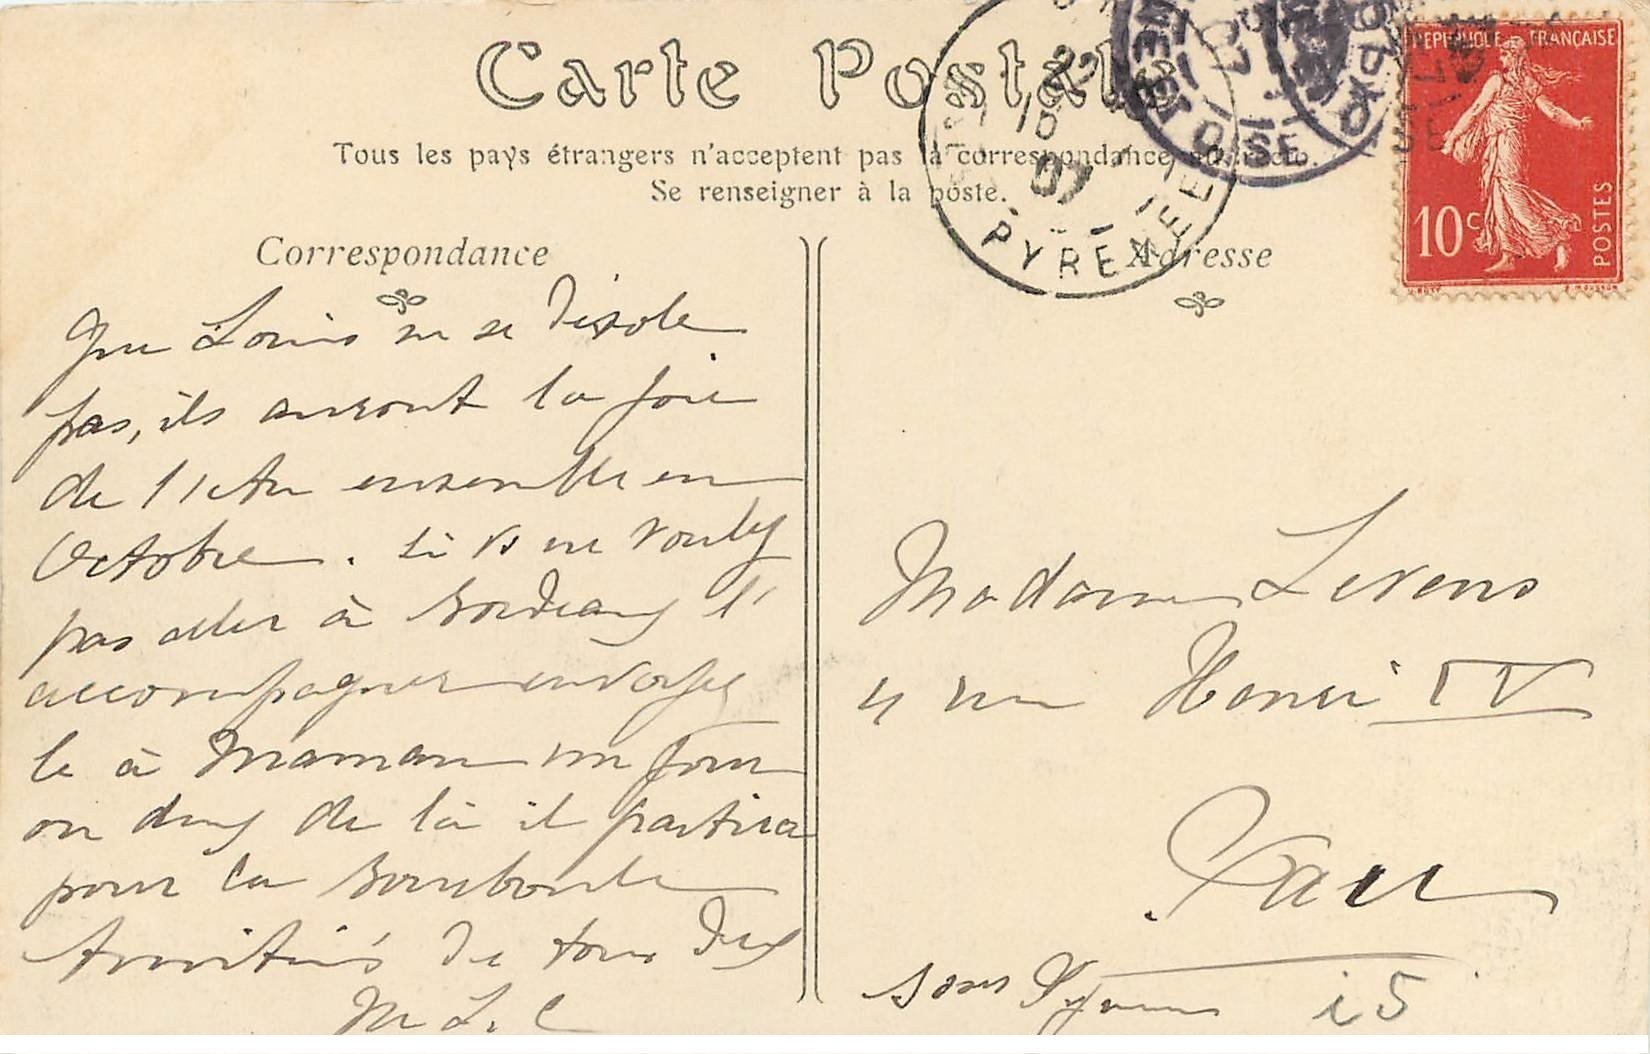 Carte Postale
Tous les pays étrangers n'acceptent pas la correspondance au recto.
Se renseigner à la poste.
Correspondance
Adresse
REPUBLIQUE FRANÇAISE
10c
POSTES
07
PYRENEES
OISE
Que Louis ne se désole
pas, ils auront la joie
de l'être ensemble en
Octobre. Si vs ne voulez
pas aller à Bordeaux l'
accompagner envoyez
le à Maman un jour
ou deux de là il partira
pour la Bourboule
Amitiés de tous deux
M L. C
Madame Levens
4 rue Henri IV
Pau
Bsses Pyrenees
15